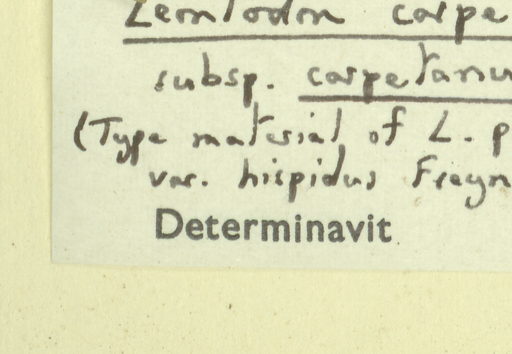 Leontodon carpe
subsp. carpetanu
(Type material of L. p
var. hispidus Freyn
Determinavit